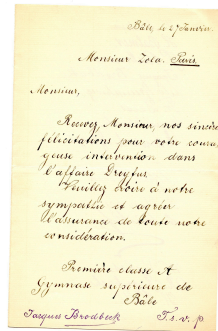 Bâle, le 27 Janvier.
Monsieur Zola. Paris.
Monsieur,
Recevez, Monsieur, nos sincères
félicitations pour votre coura-
geuse intervention dans
l'affaire Dreyfus.
Veuillez croire à notre
sympathie et agréer
l'assurance de toute notre
considération.
Première classe A
Gymnase supérieure de
Bâle
Jacques Brodbeck T. s. v. p.